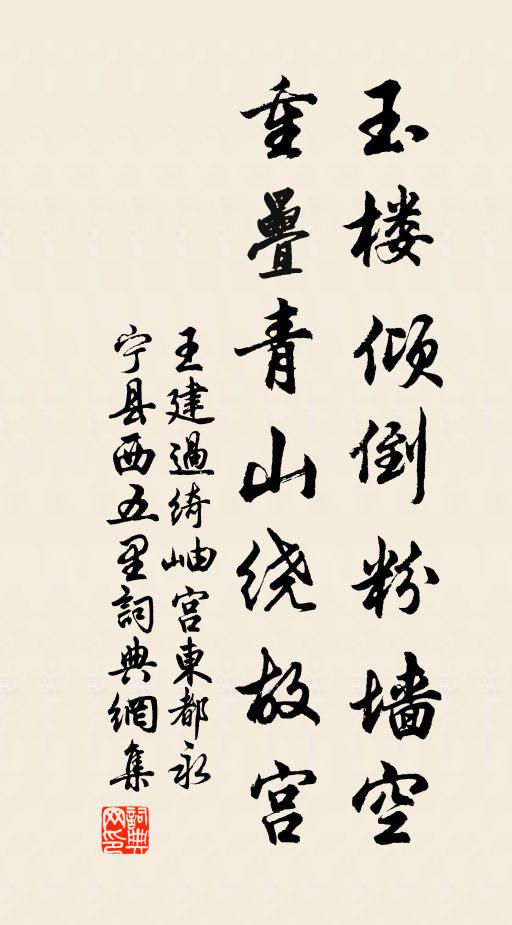 玉楼倾倒粉墙空
重疊青山绕故宫
王建過绮岫宫東都永
宁县西五里詞典網集
詞典网印